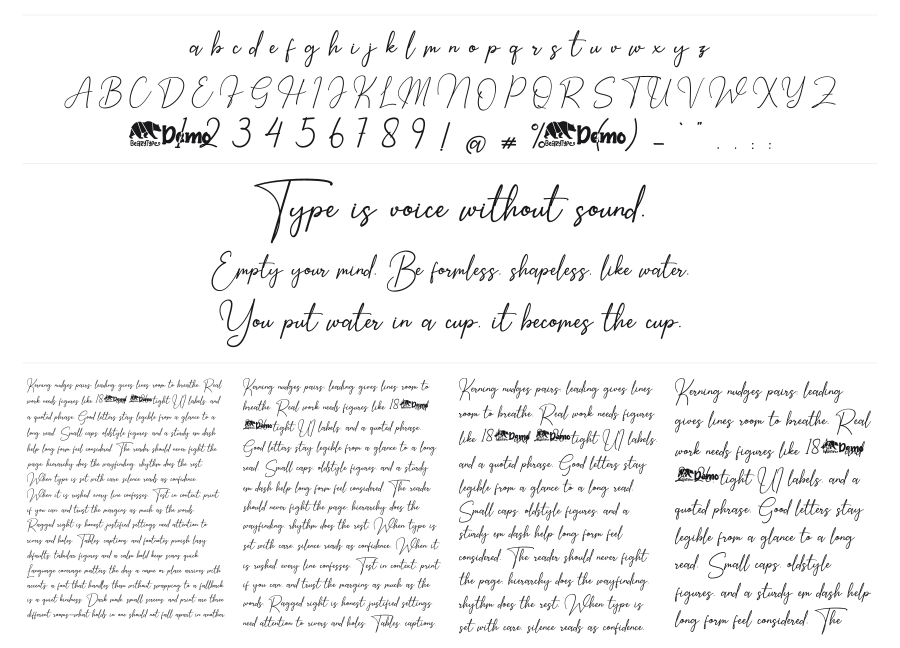 a b c d e f g h i j k l m n o p q r s t u v w x y z
A B C D E F G H I J K L M N O P Q R S T U V W X Y Z
Demo 1 2 3 4 5 6 7 8 9 ! @ # % Demo ( ) _ ` " . . : :
Type is voice without sound.
Empty your mind. Be formless. shapeless. like water.
You put water in a cup. it becomes the cup.
Kerning nudges pairs. leading gives lines room to breathe. Real
work needs figures like 18 Demo Demo tight UI labels. and
a quoted phrase. Good letters stay legible from a glance to a
long read. Small caps. oldstyle figures. and a sturdy em dash
help long form feel considered. The reader should never fight the
page. hierarchy does the wayfinding. rhythm does the rest.
When type is set with care. silence reads as confidence.
When it is rushed every line confesses. Test in context. print
if you can. and trust the margins as much as the words.
Ragged right is honest. justified settings need attention to
rivers and holes. Tables. captions. and footnotes punish lazy
defaults. tabular figures and a calm bold keep scans quick.
Language coverage matters the day a name or place arrives with
accents. a font that handles them without swapping to a fallback
is a quiet kindness. Dark mode. small screens. and print are three
different rooms—what holds in one should not fall apart in another
Kerning nudges pairs. leading gives lines room to
breathe. Real work needs figures like 18 Demo
Demo tight UI labels. and a quoted phrase.
Good letters stay legible from a glance to a long
read. Small caps. oldstyle figures. and a sturdy
em dash help long form feel considered. The reader
should never fight the page. hierarchy does the
wayfinding. rhythm does the rest. When type is
set with care. silence reads as confidence. When it
is rushed every line confesses. Test in context. print
if you can. and trust the margins as much as the
words. Ragged right is honest. justified settings
need attention to rivers and holes. Tables. captions.
Kerning nudges pairs. leading gives lines
room to breathe. Real work needs figures
like 18 Demo Demo tight UI labels.
and a quoted phrase. Good letters stay
legible from a glance to a long read.
Small caps. oldstyle figures. and a
sturdy em dash help long form feel
considered. The reader should never fight
the page. hierarchy does the wayfinding.
rhythm does the rest. When type is
set with care. silence reads as confidence.
Kerning nudges pairs. leading
gives lines room to breathe. Real
work needs figures like 18 Demo
Demo tight UI labels. and a
quoted phrase. Good letters stay
legible from a glance to a long
read. Small caps. oldstyle
figures. and a sturdy em dash help
long form feel considered. The